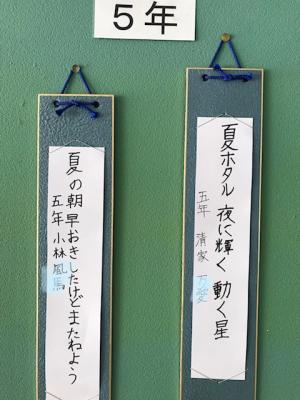 5年
夏ホタル 夜に輝く 動く星
五年 清家 万愛
夏の朝 早おきしたけどまたねよう
五年 小林 風馬